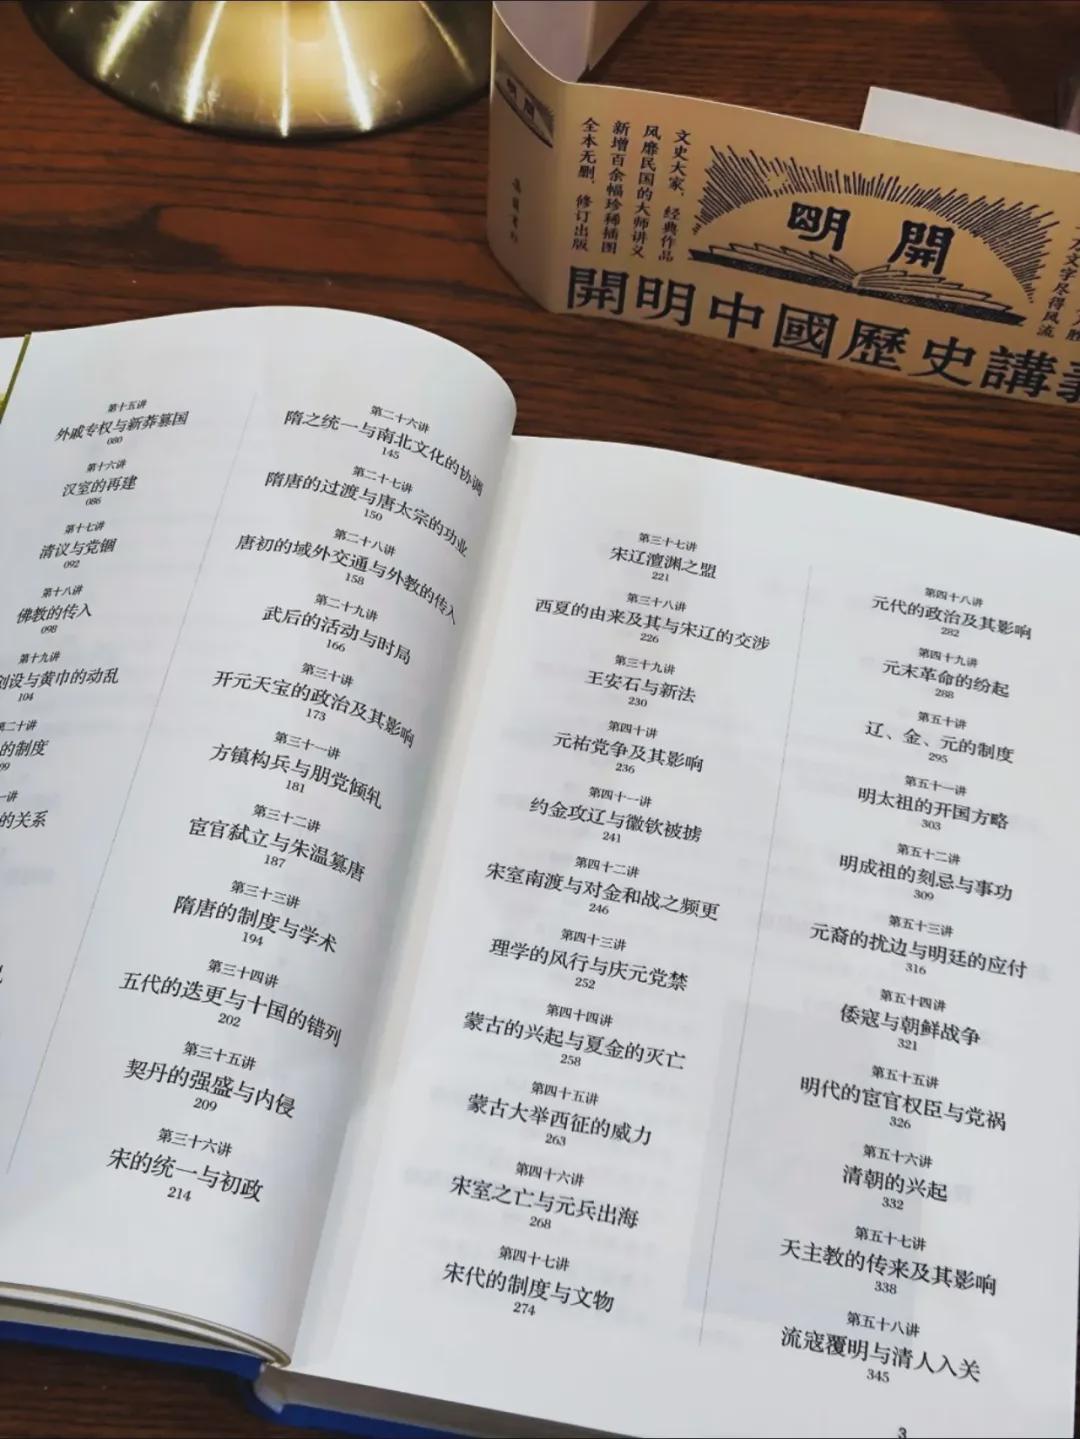 開明
文史大家，经典作品
风靡民国的大师讲义
新增百余幅珍稀插图
全本无删，修订出版
万文字尽得风流
開明中國歷史講義
第十五讲
外戚专权与新莽篡国
080
第十六讲
汉室的再建
086
第十七讲
清议与党锢
092
第十八讲
佛教的传入
098
第十九讲
创设与黄巾的动乱
104
第二十讲
的制度
09
一讲
的关系
第二十六讲
隋之统一与南北文化的协调
145
第二十七讲
隋唐的过渡与唐太宗的功业
150
第二十八讲
唐初的域外交通与外教的传入
158
第二十九讲
武后的活动与时局
166
第三十讲
开元天宝的政治及其影响
173
第三十一讲
方镇构兵与朋党倾轧
181
第三十二讲
宦官弑立与朱温篡唐
187
第三十三讲
隋唐的制度与学术
194
第三十四讲
五代的迭更与十国的错列
202
第三十五讲
契丹的强盛与内侵
209
第三十六讲
宋的统一与初政
214
第三十七讲
宋辽澶渊之盟
221
第三十八讲
西夏的由来及其与宋辽的交涉
226
第三十九讲
王安石与新法
230
第四十讲
元祐党争及其影响
236
第四十一讲
约金攻辽与徽钦被掳
241
第四十二讲
宋室南渡与对金和战之频更
246
第四十三讲
理学的风行与庆元党禁
252
第四十四讲
蒙古的兴起与夏金的灭亡
258
第四十五讲
蒙古大举西征的威力
263
第四十六讲
宋室之亡与元兵出海
268
第四十七讲
宋代的制度与文物
274
第四十八讲
元代的政治及其影响
282
第四十九讲
元末革命的纷起
288
第五十讲
辽、金、元的制度
295
第五十一讲
明太祖的开国方略
303
第五十二讲
明成祖的刻忌与事功
309
第五十三讲
元裔的扰边与明廷的应付
316
第五十四讲
倭寇与朝鲜战争
321
第五十五讲
明代的宦官权臣与党祸
326
第五十六讲
清朝的兴起
332
第五十七讲
天主教的传来及其影响
338
第五十八讲
流寇覆明与清人入关
345
3